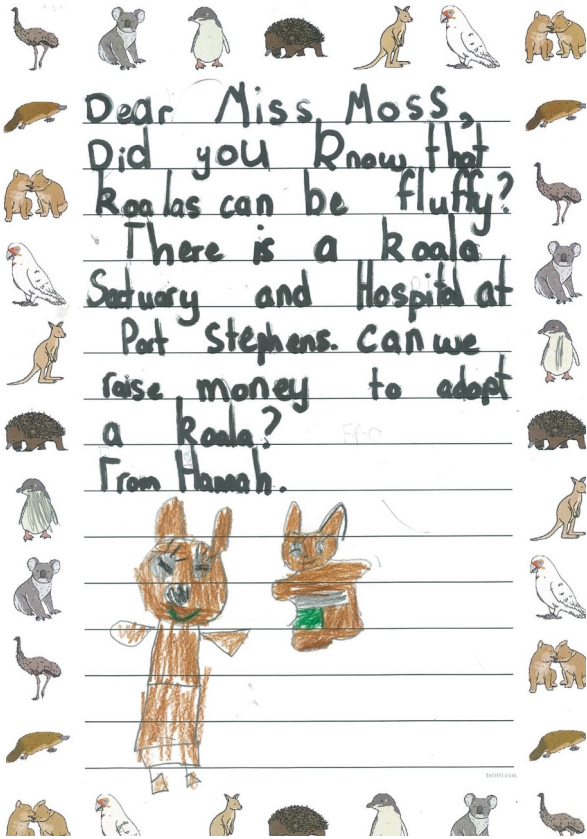 Dear Miss Moss,
Did you know that
koalas can be fluffy?
There is a koala
Sactuary and Hospital at
Port Stephens. can we
raise money to adopt
a koala?
From Hannah.
twinkl.com